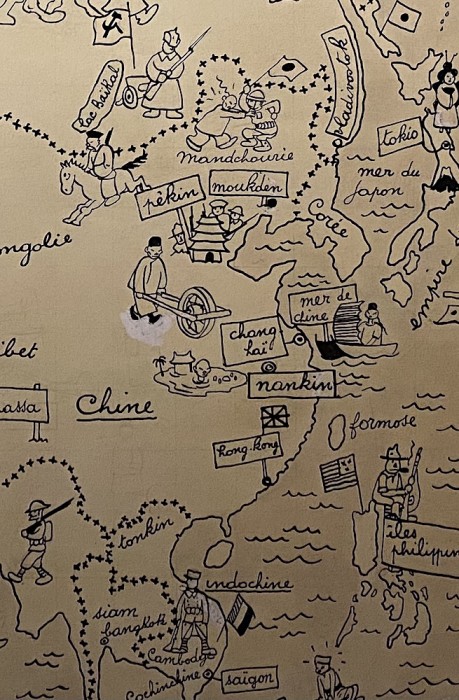 Lac baïkal
Vladivostok
tokio
Mandchourie
mer du
Japon
pékin
moukden
Corée
ngolie
empire
mer de
chine
chang
haï
ibet
nankin
assa
Chine
formose
hong-kong
îles
philippin
tonkin
indochine
siam
bangkok
Cambodge
Cochinchine
saïgon